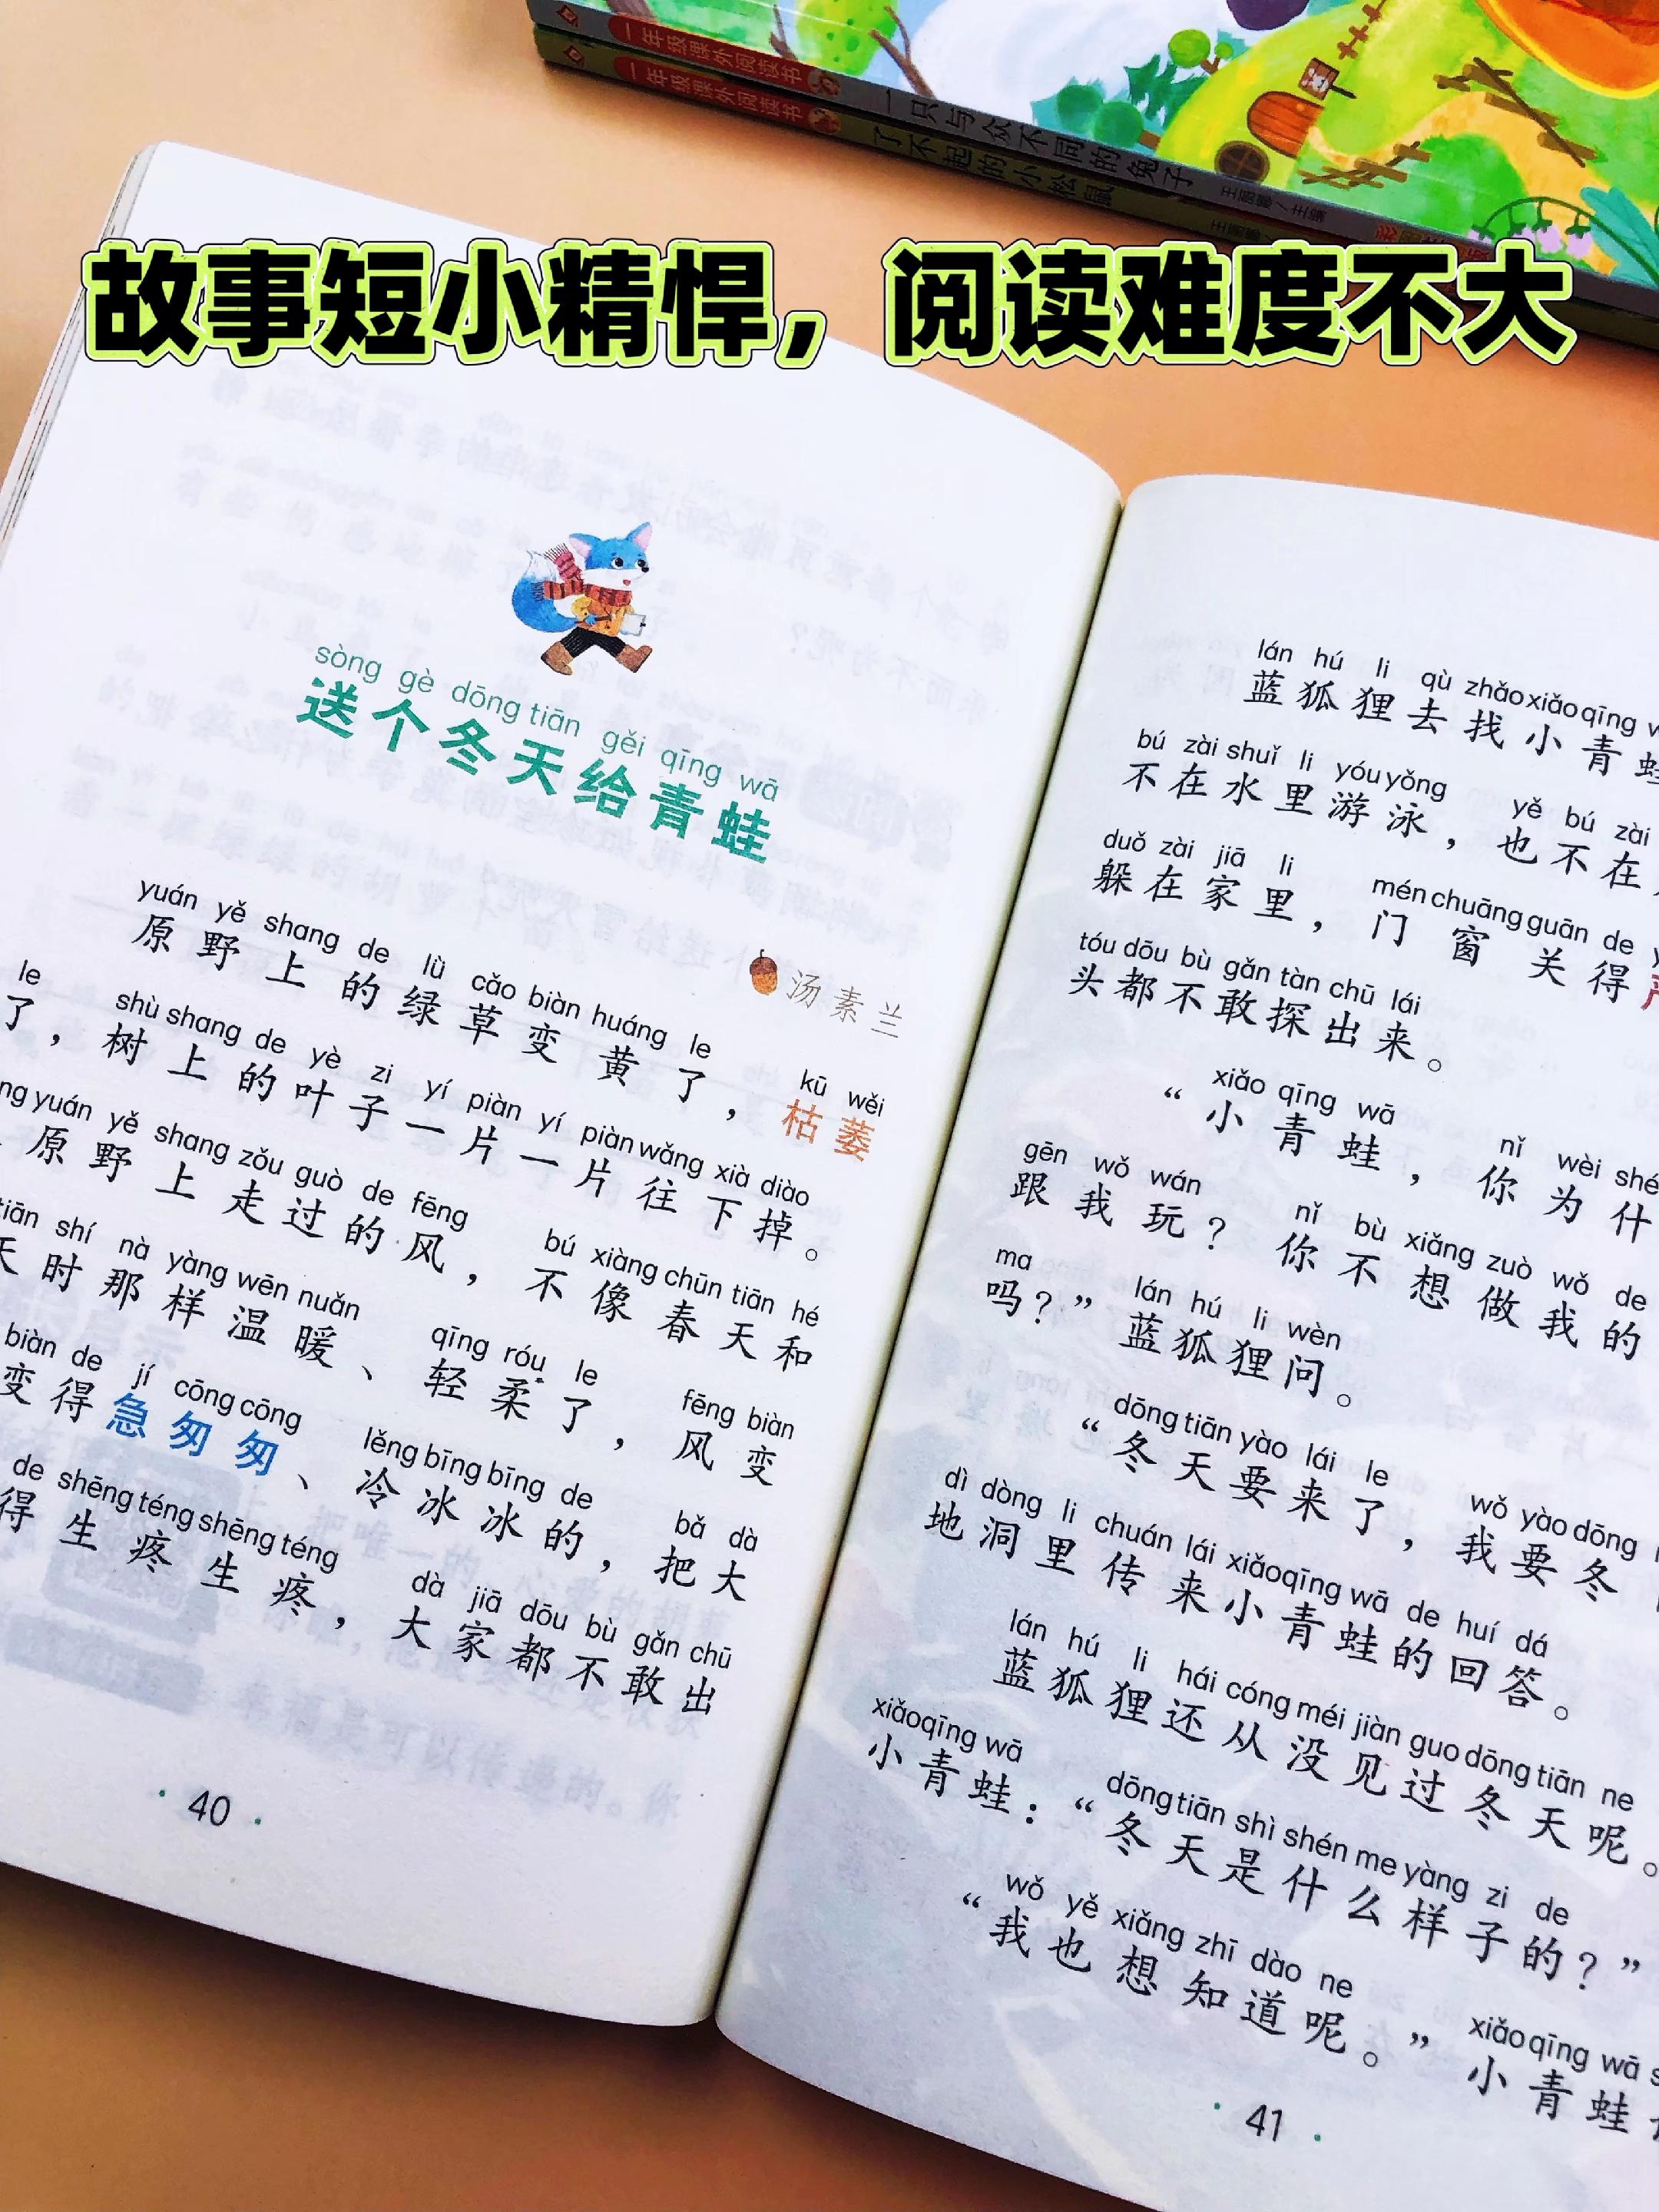 一年级课外阅读书
一只与众不同的兔子
王丽娜/主编
一年级课外阅读书
了不起的小松鼠
故事短小精悍，阅读难度不大
sòng gè dōng tiān gěi qīng wā
送个冬天给青蛙
汤素兰
yuán yě shang de lǜ cǎo biàn huáng le kū wěi
原野上的绿草变黄了，枯萎
le shù shang de yè zi yí piàn yí piàn wǎng xià diào
了，树上的叶子一片一片往下掉。
yuán yě shang zǒu guò de fēng bú xiàng chūn tiān hé
原野上走过的风，不像春天和
tiān shí nà yàng wēn nuǎn qīng róu le fēng biàn
天时那样温暖、轻柔了，风变
biàn de jí cōng cōng lěng bīng bīng de bǎ dà
变得急匆匆、冷冰冰的，把大
de shēng téng shēng téng dà jiā dōu bù gǎn chū
得生疼生疼，大家都不敢出
40
lán hú li qù zhǎo xiǎo qīng
蓝狐狸去找小青蛙
bú zài shuǐ li yóu yǒng yě bú zài
不在水里游泳，也不在
duǒ zài jiā li mén chuāng guān de
躲在家里，门窗关得
tóu dōu bù gǎn tàn chū lái
头都不敢探出来。
xiǎo qīng wā nǐ wèi shé
“小青蛙，你为什
gēn wǒ wán nǐ bù xiǎng zuò wǒ de
跟我玩？你不想做我的
ma lán hú li wèn
吗？”蓝狐狸问。
dōng tiān yào lái le wǒ yào dōng
“冬天要来了，我要冬
dì dòng li chuán lái xiǎo qīng wā de huí dá
地洞里传来小青蛙的回答。
lán hú li hái cóng méi jiàn guo dōng tiān ne
蓝狐狸还从没见过冬天呢。
xiǎo qīng wā dōng tiān shì shén me yàng zi de
小青蛙：“冬天是什么样子的？”
wǒ yě xiǎng zhī dào ne xiǎo qīng wā
“我也想知道呢。”小青蛙
41